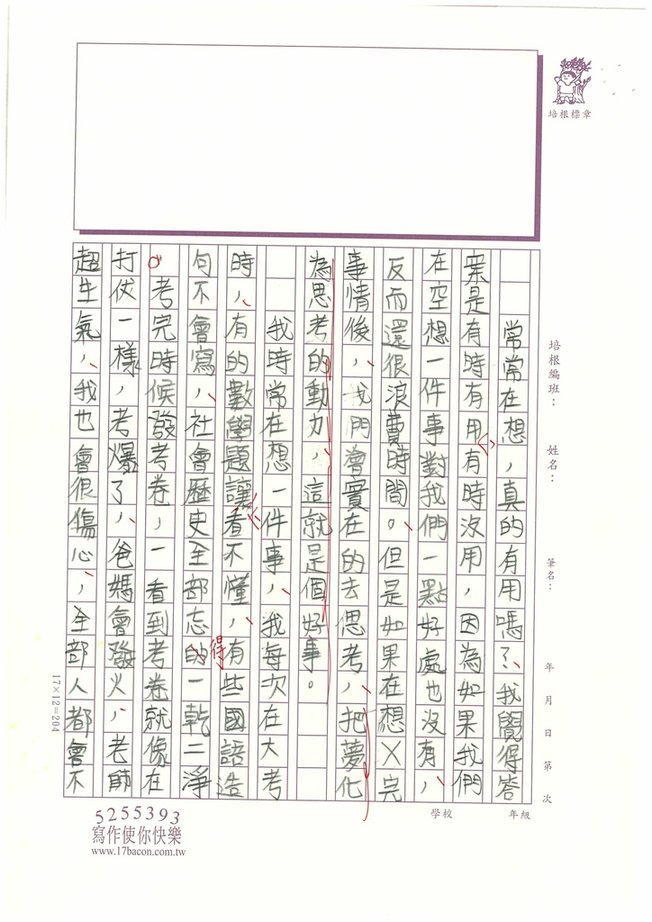 培根標章
培根編班：
姓名：
筆名：
年 月 日 第 次
學校
年級
常常在想，真的有用嗎？我覺得答
案是有時有用有時沒用，因為如果我們
在空想一件事對我們一點好處也沒有，
反而還很浪費時間。但是如果在想完
事情後，我們會實在的去思考，把夢化
為思考的動力，這就是個好事。
我時常在想一件事，我每次在大考
時，有的數學題讓看不懂，有些國語造
句不會寫，社會歷史全部忘的得一乾二淨
。考完時候發考卷，一看到考卷就像在
打仗一樣，考爆了，爸媽會發火，老師
超生氣，我也會很傷心，全部人都會不
17×12=204
5255393
寫作使你快樂
www.17bacon.com.tw